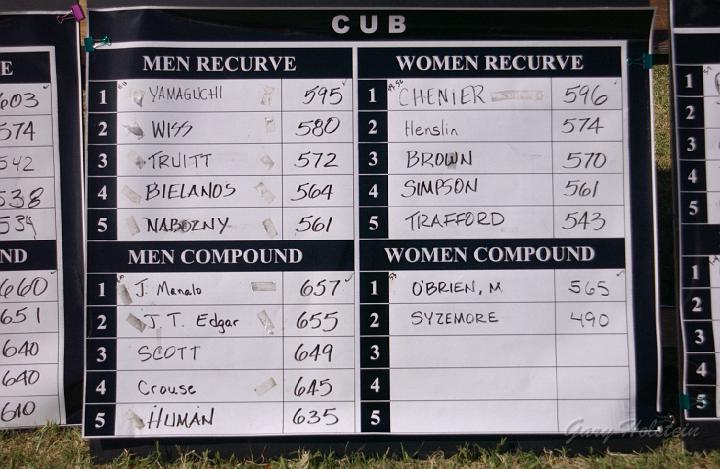 CUB
MEN RECURVE
1 YAMAGUCHI 595
2 WISS 580
3 TRUITT 572
4 BIELANOS 564
5 NABOZNY 561
WOMEN RECURVE
1 CHENIER 596
2 Henslin 574
3 BROWN 570
4 SIMPSON 561
5 TRAFFORD 543
MEN COMPOUND
1 J. Manalo 657
2 J.T. Edgar 655
3 SCOTT 649
4 Crouse 645
5 HUMAN 635
WOMEN COMPOUND
1 O'BRIEN, M 565
2 SYZEMORE 490
3
4
5
E
603
574
542
538
534
ND
660
651
640
640
610
1
2
3
4
5
1
2
3
4
5
Gary Holstein